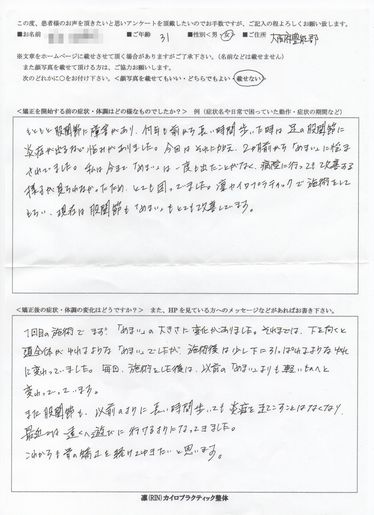 この度、患者様のお声を頂きたいと思いアンケートを頂戴したいのでお手数ですが、ご記入の程よろしくお願い致します。
■お名前 ■ご年齢 31 ■性別＜ 男 ・ 女 ＞ ■ご住所 大阪府
※文章をホームページに載せさせて頂く場合がありますがご了承下さい。（名前などは載せません）
また顔写真を載せて頂ける方は、ご協力お願いします。
次のどれかに○をお付け下さい。＜顔写真を載せてもいい・どちらでもよい・載せない＞
＜矯正を開始する前の症状・体調はどの様なものでしたか？＞ 例（症状名や日常で困っていた動作・症状の期間など）
もともと股関節に障害があり、何年も前から長い時間歩いた時は足の股関節に
炎症が出るなどの悩みがありました。今回はそれに加え、2ヶ月前から「めまい」に悩ま
されていました。私は今まで「めまい」は一度も出たことがなく、病院に行っても改善する
様子が見られなかったため、とても困っていました。凛カイロプラクティックで施術をして
もらい、現在は股関節も「めまい」もとても改善しています。
＜矯正後の症状・体調の変化はどうですか？＞ また、HPを見ている方へのメッセージなどがあればお書き下さい。
1回目の施術でまず「めまい」の大きさに変化がありました。それまでは、下を向くと
頭全体がゆれるような「めまい」でしたが、施術後は少し下に引っぱれるようなゆれ
に変わっていました。毎回、施術をした後は、以前の「めまい」よりも軽いものへと
変わっていっています。
また股関節も、以前のように長い時間歩いても炎症を生こすことはなくなり、
最近では遠くへ遊びに行けるようになってきました。
これからも骨の矯正を続けてゆきたいと思います。
凛(RIN)カイロプラクティック整体